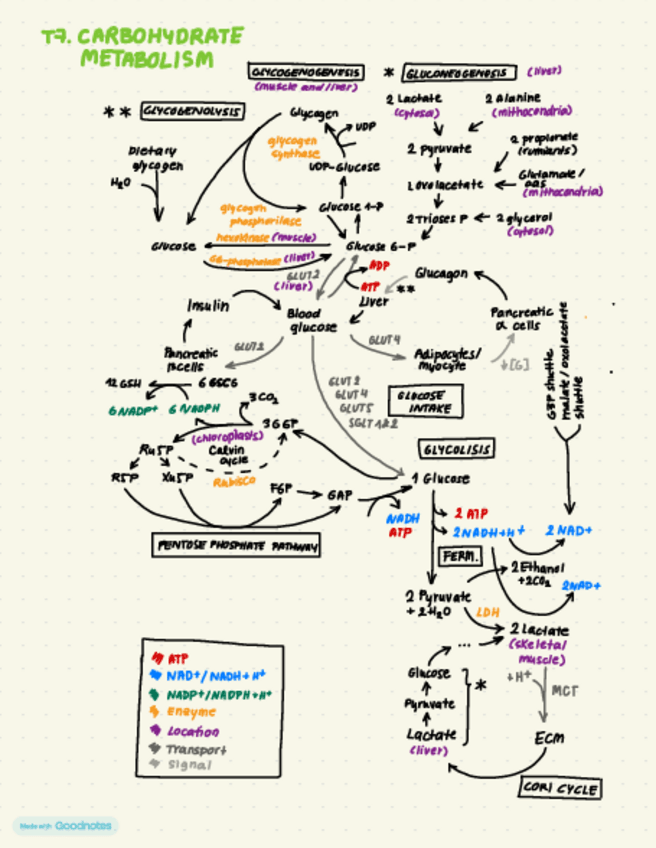 T7. CARBOHYDRATE
METABOLISM
GLYCOGENOGENESIS
(muscle and liver)
* GLUCONEOGENESIS (liver)
** GLYCOGENOLYSIS
Glycogen
UDP
glycogen
synthase
UDP-Glucose
Glucose 1-P
Dietary
glycogen
H2O
glycogen
phosphorilase
Glucose
hexokinase (muscle)
(liver)
Glucose 6-P
2 Lactate
(cytosol)
2 Alanine
(mithocondria)
2 pyruvate
2 propionate
(rumiants)
Glutamate/
(mithocondria)
2 Trioses P
2 glycerol
(cytosol)
GLUT2
(liver)
ADP
ATP
Liver
**
Glucagon
Insulin
Blood
glucose
Pancreatic
α cells
Pancreatic
GLUT2
GLUT4
Adipocytes/
myocyte
↓[G]
G3P shuttle
malate/oxalacetate
shuttle
GLUT2
GLUT4
GLUT5
SGLT 1&2
GLUCOSE
INTAKE
12 GSH
6 GSSG
6 NADP+
6 NADPH
3CO2
3G6P
(chloroplasts)
Calvin
cycle
Ru5P
R5P
Xu5P
Rubisco
F6P
GAP
NADH
ATP
PENTOSE PHOSPHATE PATHWAY
GLYCOLISIS
1 Glucose
2 ATP
2NADH+H+
2 NAD+
FERM.
2 Ethanol
+2CO2
2NAD+
2 Pyruvate
+2H2O
LDH
2 Lactate
(skeletal
muscle)
...
+H+
MCT
Glucose
Pyruvate
*
Lactate
(liver)
ECM
CORI CYCLE
ATP
NAD+/NADH+H+
NADP+/NADPH+H+
Enzyme
Location
Transport
Signal
Made with Goodnotes